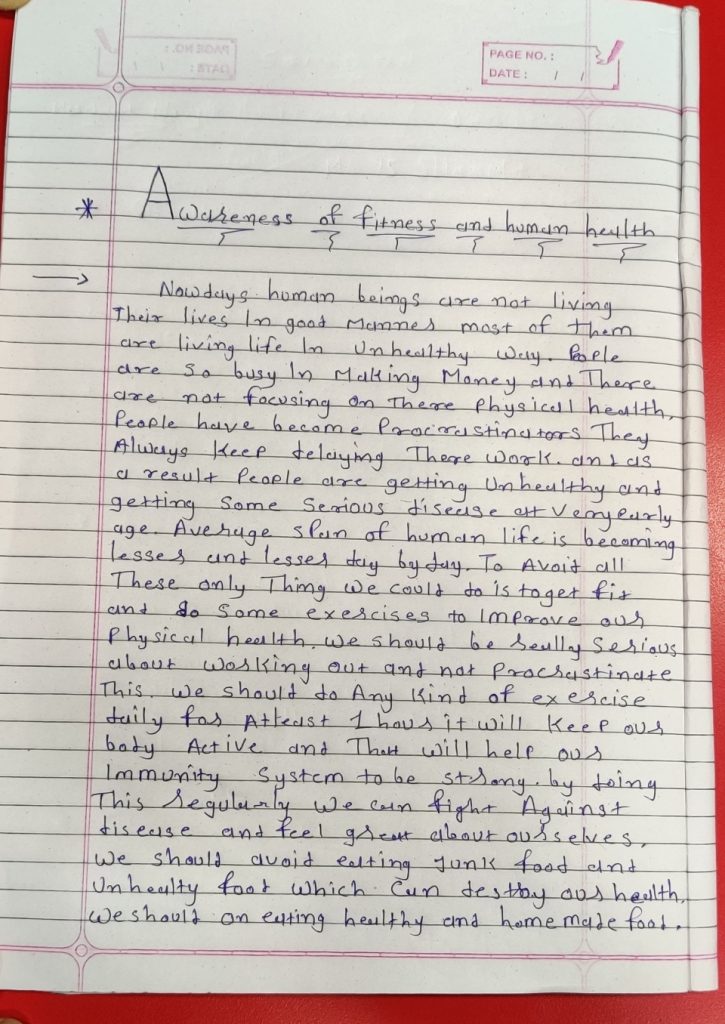 PAGE NO. :
DATE : / /
* Awareness of fitness and human health
→ Nowdays human beings are not living
Their lives In good Manner most of them
are living life In Unhealthy way. People
are so busy In Making Money and There
are not focusing on There Physical health.
People have become Procrastinators They
Always Keep delaying There work. and as
a result People are getting Unhealthy and
getting Some Serious disease at very early
age. Average span of human life is becoming
lesser and lesser day by day. To Avoid all
These only Thing we could do is to get fit
and do Some exercises to Improve our
Physical health. we should be really Serious
about working out and not Procrastinate
This. we should do Any Kind of exercise
daily for Atleast 1 hour it will Keep our
body Active and That will help our
Immunity System to be strong. by doing
This regularly we can fight Against
disease and feel great about ourselves.
we should avoid eating Junk food and
Unhealty food which can destroy our health.
we should on eating healthy and home made food.